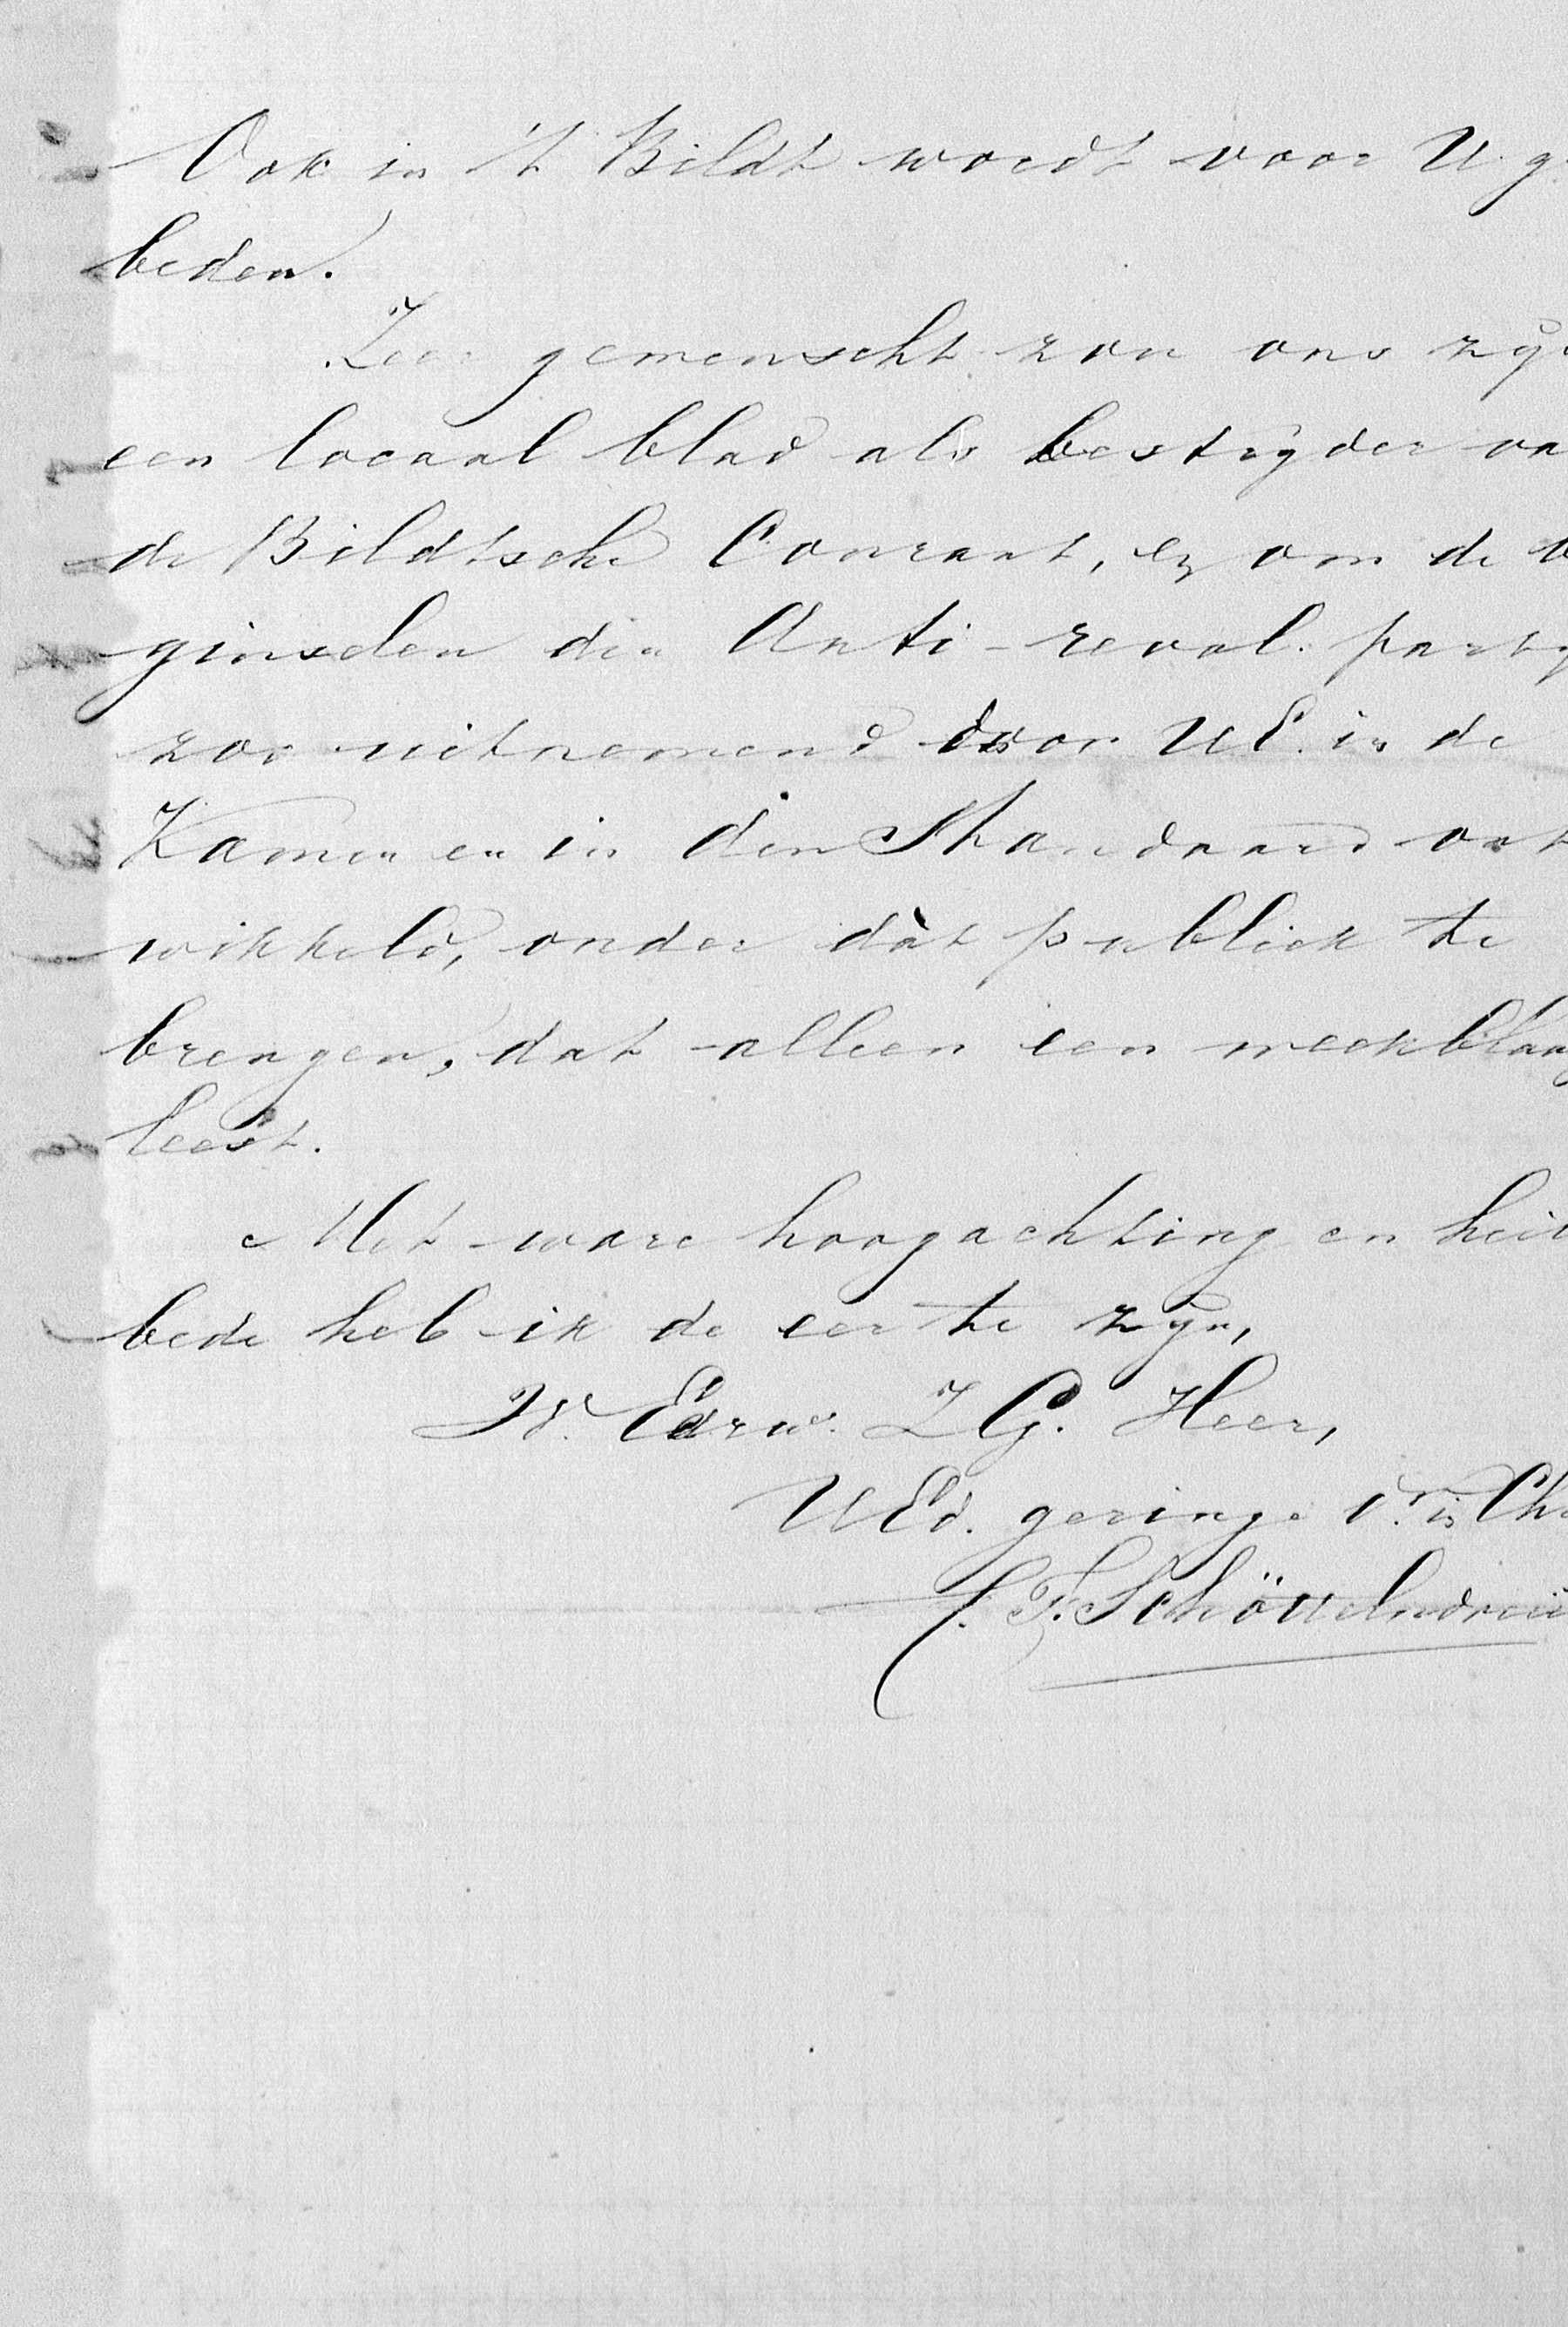 Ook in 't Bildt wordt voor U g
beden.
Zeer gewenscht zou ons zijn
een locaal blad als bestrijder va
de Bildtsche Courant, en om de b
ginselen der Anti-revol. partij
zoo uitnemend door UE. in de
Kamer en in den Standaard ont
wikkeld, onder dàt publiek te
brengen, dat alleen een weekblaa
leest.
Met ware hoogachting en heil
bede heb ik de eer te zijn,
W. Eerw. Z G. Heer,
UEd. geringe dr. in Chr
F. Schöttelndreië